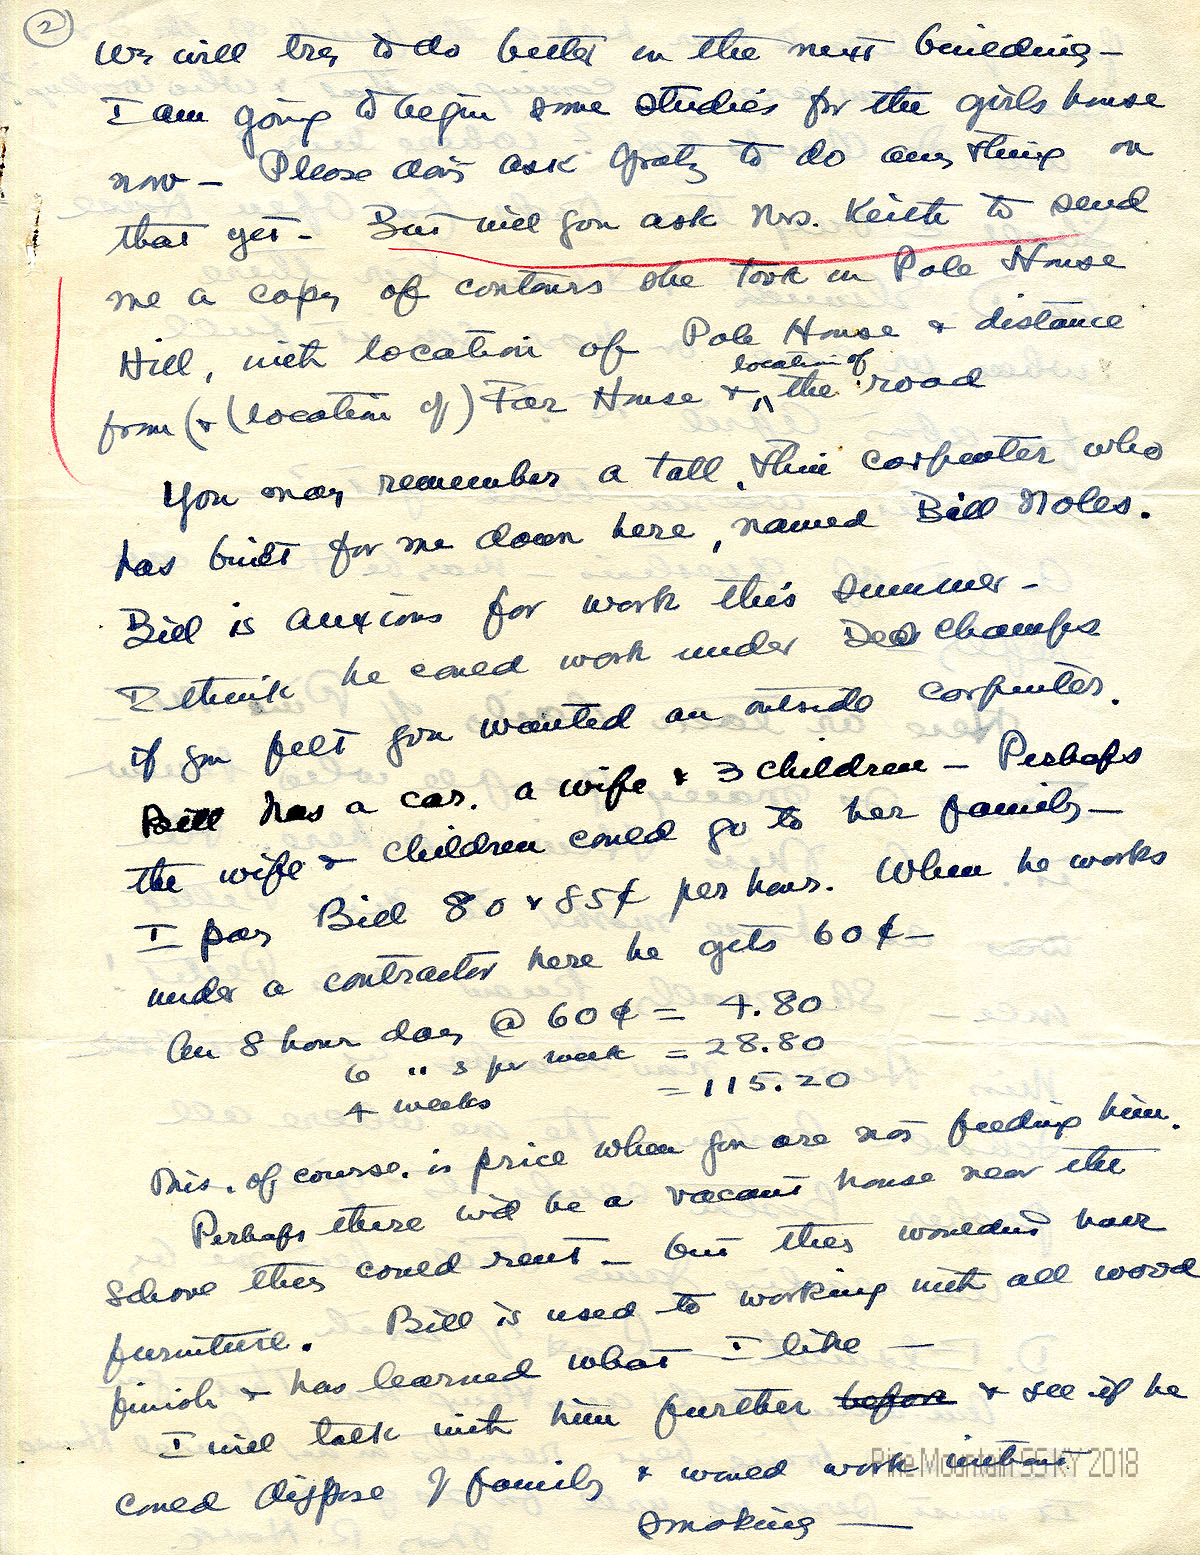 2
We will try to do better in the next building –
I am going to begin some studies for the girls house
now – Please don't ask Gratz to do any thing on
that yet – But will you ask Mrs. Keith to send
me a copy of contours she took in Pole House
Hill, with location of Pole House & distance
from (& (location of) Far House & location of the road
You may remember a tall, thin carpenter who
has built for me down here, named Bill Noles.
Bill is anxious for work this summer –
I think he could work under Des Champs
if you felt you wanted an outside carpenter.
Bill has a car, a wife & 3 children – Perhaps
the wife & children could go to her family –
I pay Bill 80 & 85¢ per hour. When he works
under a contractor here he gets 60¢ –
An 8 hour day @ 60¢ = 4.80
6 " s per week = 28.80
4 weeks = 115.20
This, of course, is price when you are not feeding him.
Perhaps there w'd be a vacant house near the
School they could rent – but they wouldn't have
furniture. Bill is used to working with all wood
finish & has learned what I like –
I will talk with him further before & see if he
could dispose of family & would work without
smoking –
Pine Mountain SS KY 2018